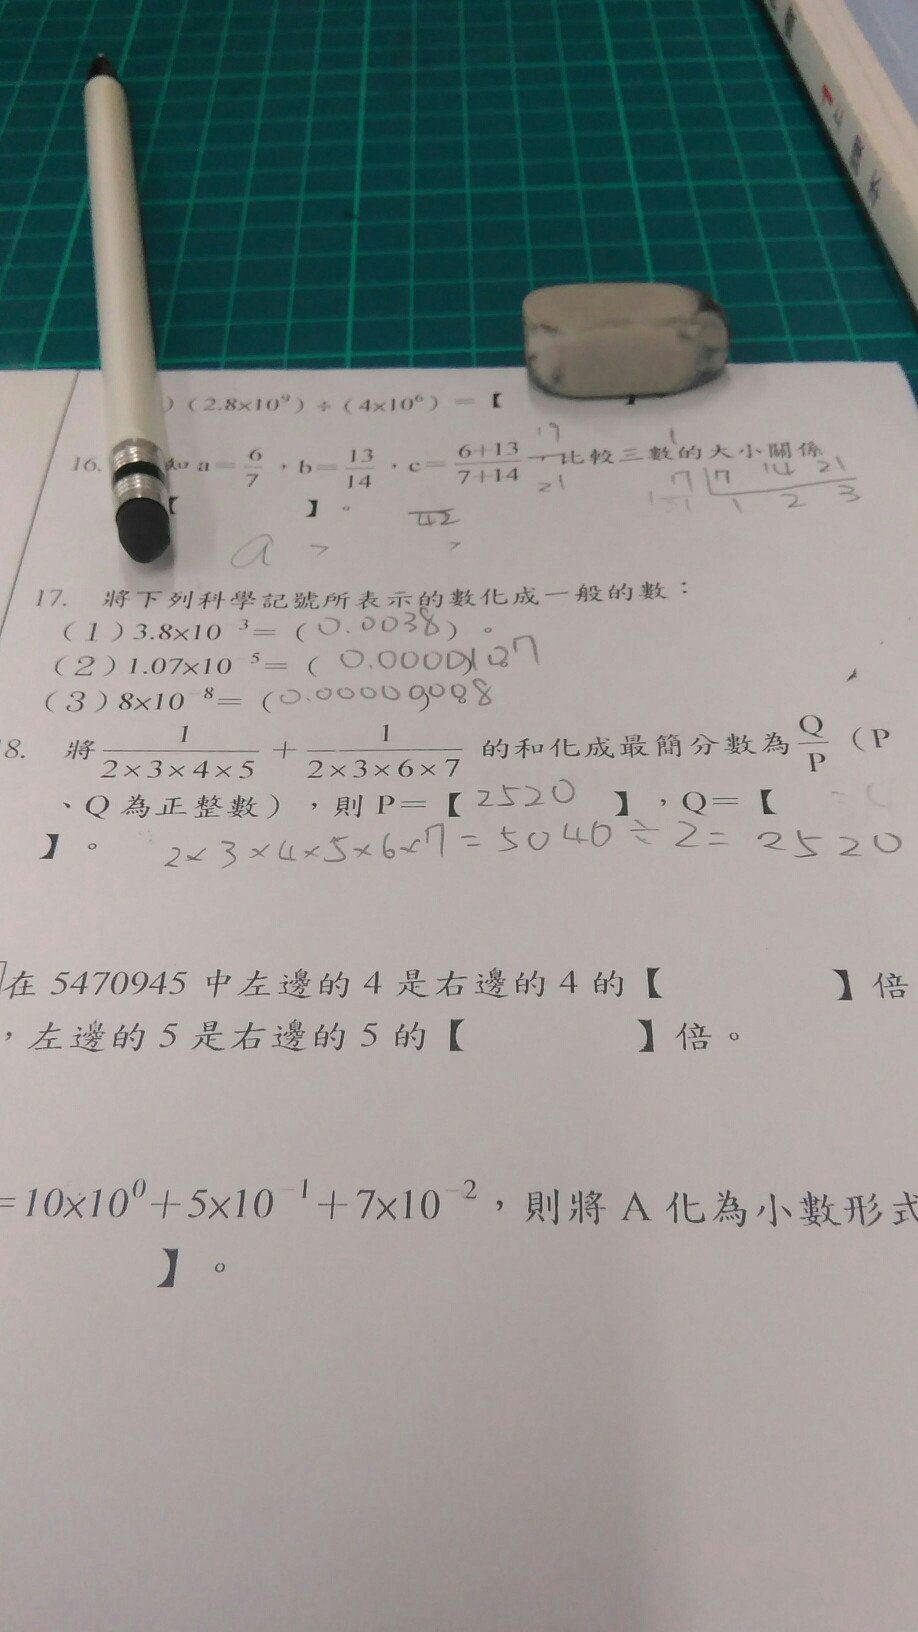 ) (2.8×10⁹) ÷ (4×10⁶) = 【 】。
16. 知 a=6/7，b=13/14，c=(6+13)/(7+14)，比較三數的大小關係
19
21
7 7 14 21
1 2 3
【 】。
42
a > >
17. 將下列科學記號所表示的數化成一般的數：
(1) 3.8×10⁻³= (0.0038)。
(2) 1.07×10⁻⁵= (
(3) 8×10⁻⁸= (
18. 將 1/(2×3×4×5) + 1/(2×3×6×7) 的和化成最簡分數為 Q/P (P
、Q 為正整數)，則 P=【2520】，Q=【
】。 2×3×4×5×6×7=5040÷2=2520
在 5470945 中左邊的 4 是右邊的 4 的【 】倍
，左邊的 5 是右邊的 5 的【 】倍。
=10×10⁰+5×10⁻¹+7×10⁻²，則將 A 化為小數形式
】。